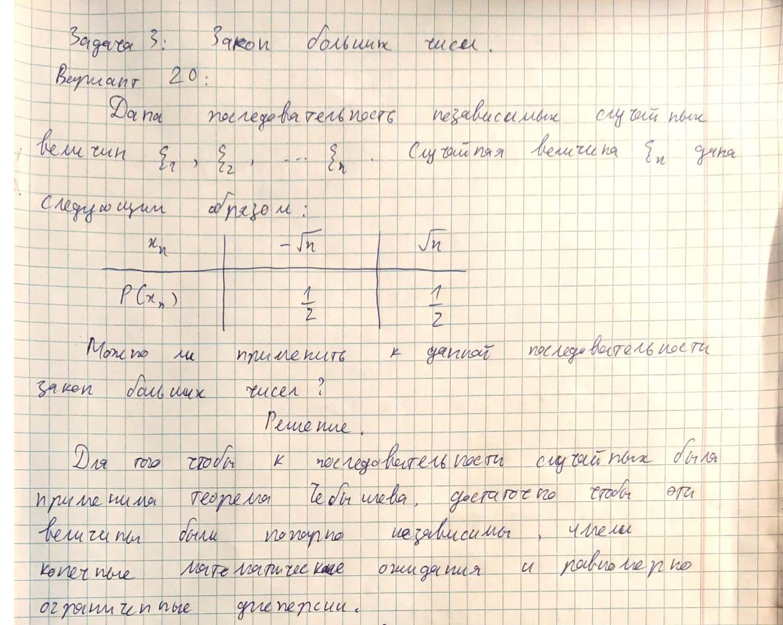 Задача 3: Закон больших чисел.
Вариант 20:
Дана последовательность независимых случайных
величин ξ₁, ξ₂, ... ξₙ. Случайная величина ξₙ дана
следующим образом:
xₙ | -√n | √n
P(xₙ) | 1/2 | 1/2
Можно ли применить к данной последовательности
закон больших чисел?
Решение.
Для того чтобы к последовательности случайных была
применима теорема Чебышева, достаточно чтобы эти
величины были попарно независимы, имели
конечные математические ожидания и равномерно
ограниченные дисперсии.